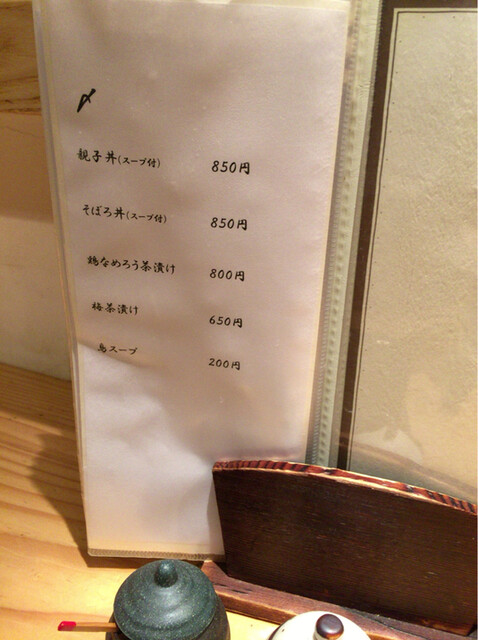 〆
親子丼(スープ付) 850円
そぼろ丼(スープ付) 850円
鶏なめろう茶漬け 800円
梅茶漬け 650円
鳥スープ 200円